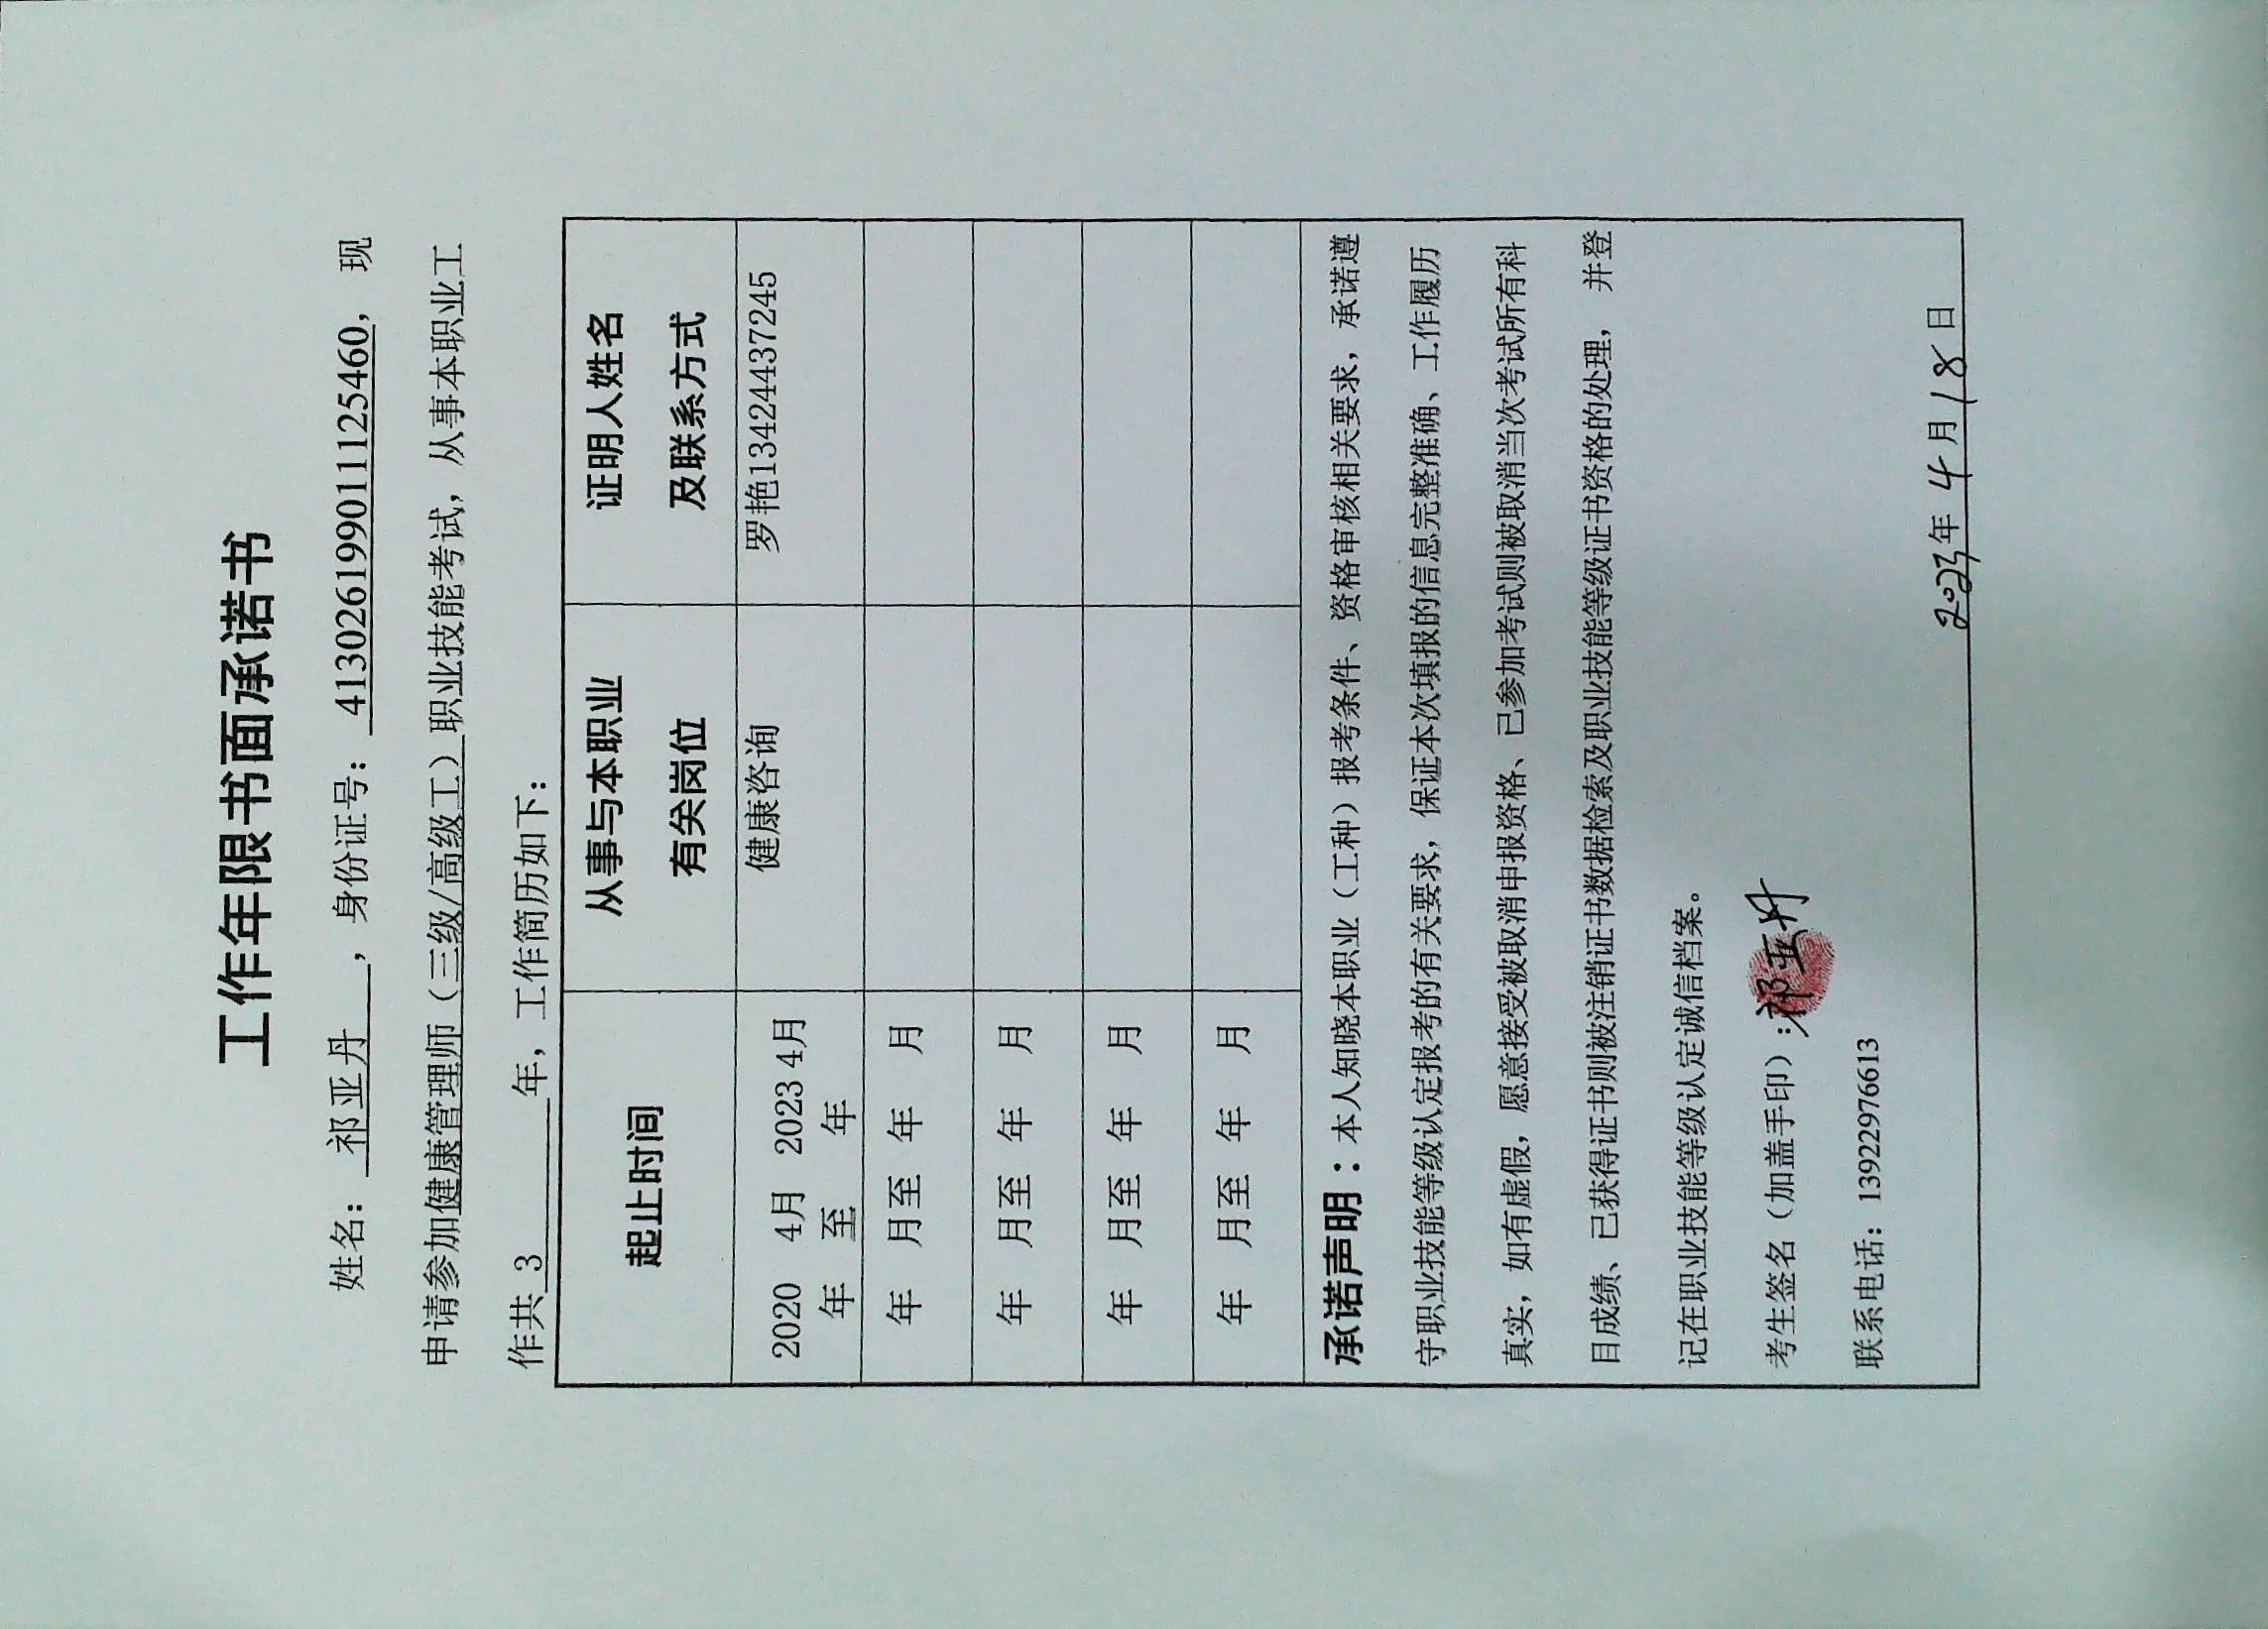 工作年限书面承诺书
姓名：祁亚丹，身份证号：413026199011125460，现
申请参加健康管理师（三级/高级工）职业技能考试，从事本职业工
作共 3 年，工作简历如下：
起止时间 从事与本职业有关岗位 证明人姓名及联系方式
2020年 4月至 2023年 4月 健康咨询 罗艳13424437245
年 月至 年 月
年 月至 年 月
年 月至 年 月
年 月至 年 月
承诺声明：本人知晓本职业（工种）报考条件、资格审核相关要求，承诺遵
守职业技能等级认定报考的有关要求，保证本次填报的信息完整准确、工作履历
真实，如有虚假，愿意接受被取消申报资格、已参加考试则被取消当次考试所有科
目成绩、已获得证书则被注销证书数据检索及职业技能等级证书资格的处理，并登
记在职业技能等级认定诚信档案。
考生签名（加盖手印）：祁亚丹
联系电话：13922976613
2023年 4 月 18 日